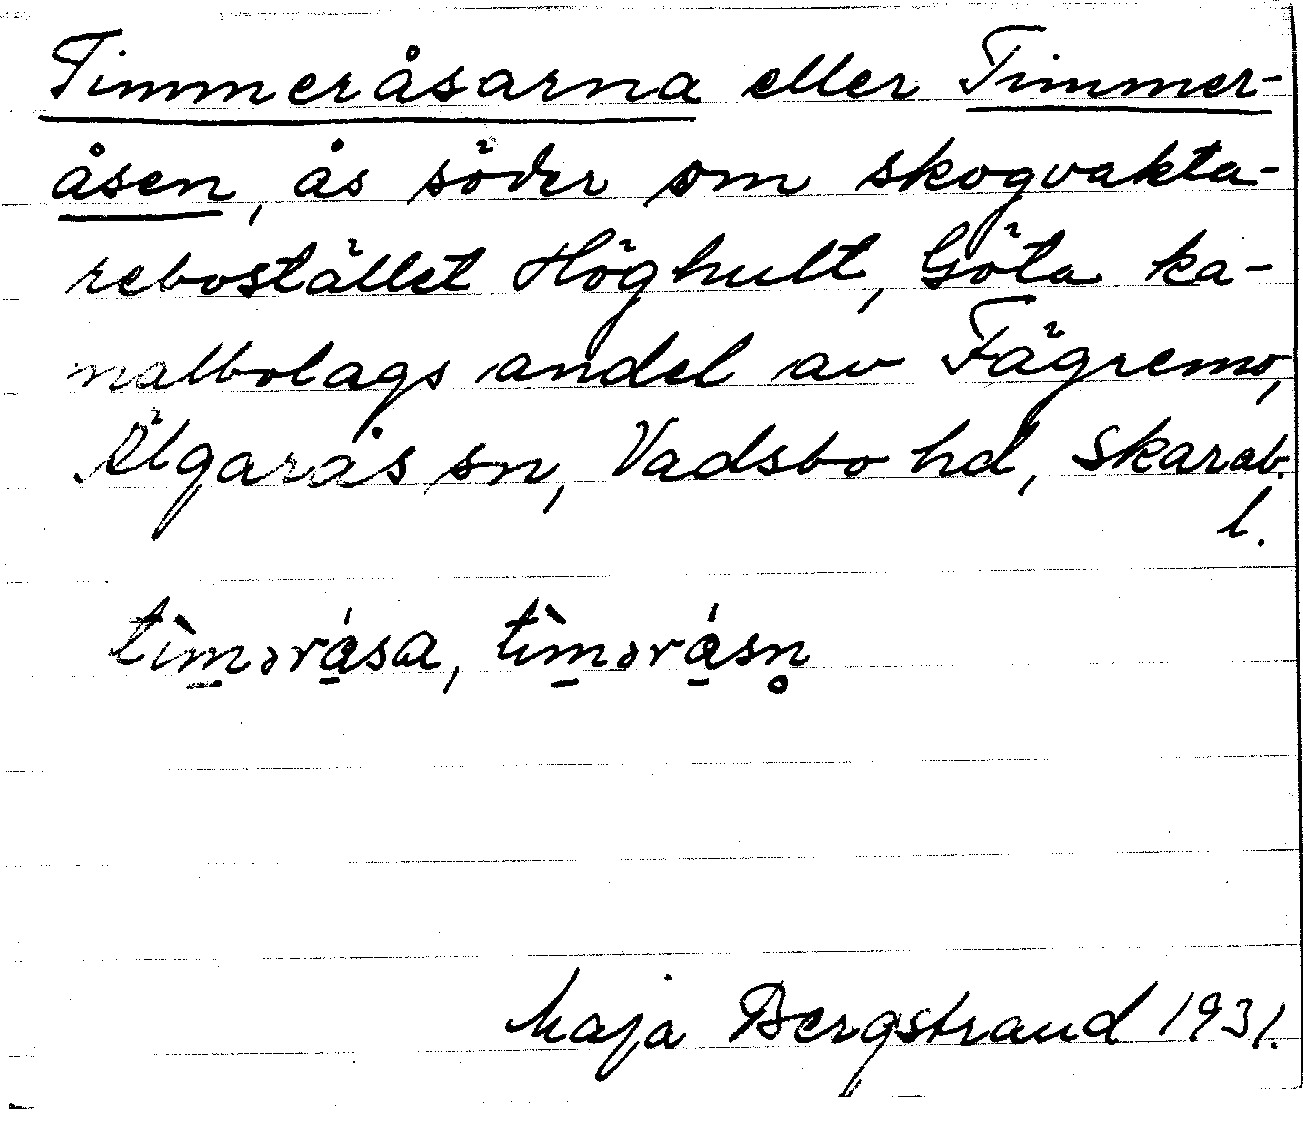 Timmeråsarna eller Timmer-
åsen, ås söder om skogvakta-
rebostället Höghult, Göta ka-
nalbolags andel av Fägremo,
Älgarås sn, Vadsbo hd, Skarab.
l.
tìm̱ərá̱sa, tìm̱ərá̱sn̥
Maja Bergstrand 1931.